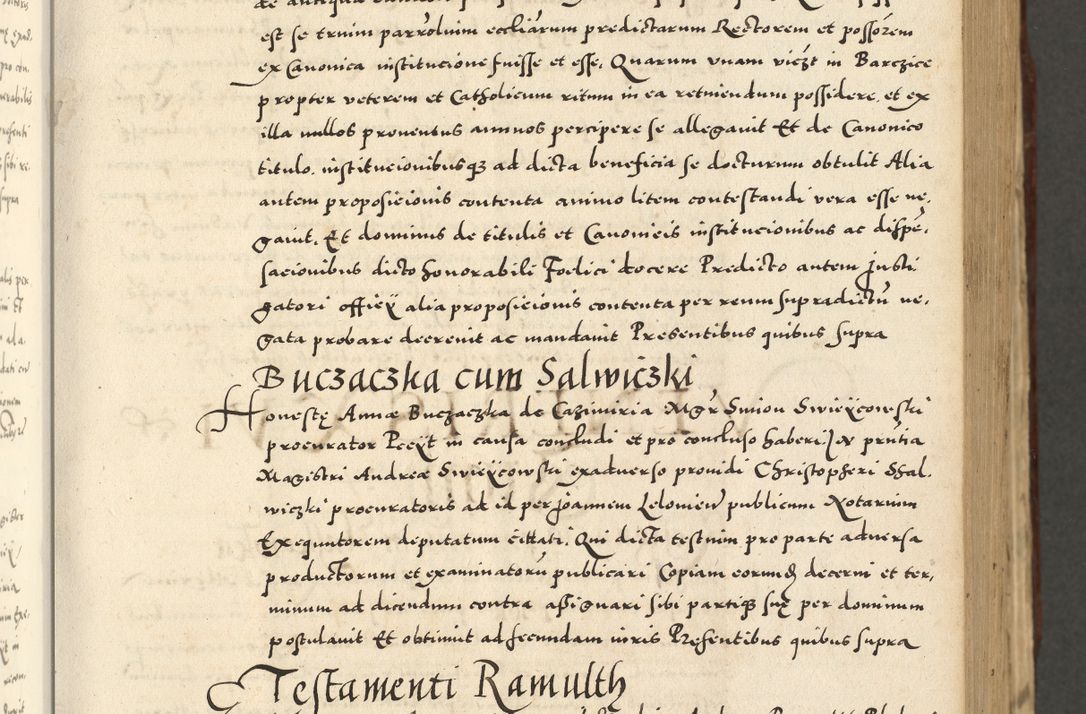 est se trium parrochium eccliarum predictarum Rectorem et possorem
ex Canonica institucione fuisse et esse. Quarum unam viczt in Barczice
propter veterem et Catholicum ritum in ea retinendum possidere, et ex
illa nullos proventus annuos percipere se allegavit Et de Canonico
titulo, institucionibusq3 ad dicta beneficia se docturum obtulit Alia
autem proposicionis contenta animo litem contestandi vera esse ne,
gavit. Et dominus de titulis et Canonicis institucionibus ac dispe,
sacionibus dicto honorabili Foelici docere Predicto autem Justi
gatori officÿ alia proposicionis contenta per reum supradictū ne,
gata probare decrevit ac mandavit Presentibus quibus supra
Buczaczka cum Salwiczki
Honestę Annæ Buczaczka de Cazimiria Mgr Simon Swieÿcowski
procurator Peeÿt in causa concludi et pro concluso haberi In prntia
Magistri Andreæ Swieÿcowski exadverso providi Christopheri Shal,
wiczki procuratoris ad id per Joannem publicum Notarium
Exequutorem deputatum cittati, Qui dicta testium pro parte adversa
productorum et examinatorū publicari Copiam eorund decerni et ter,
minum ad dicendum contra assignari sibi partiq3 suę per dominum
postulavit Et obtinuit ad secundam iuris Presentibus quibus supra
Testamenti Ramulth